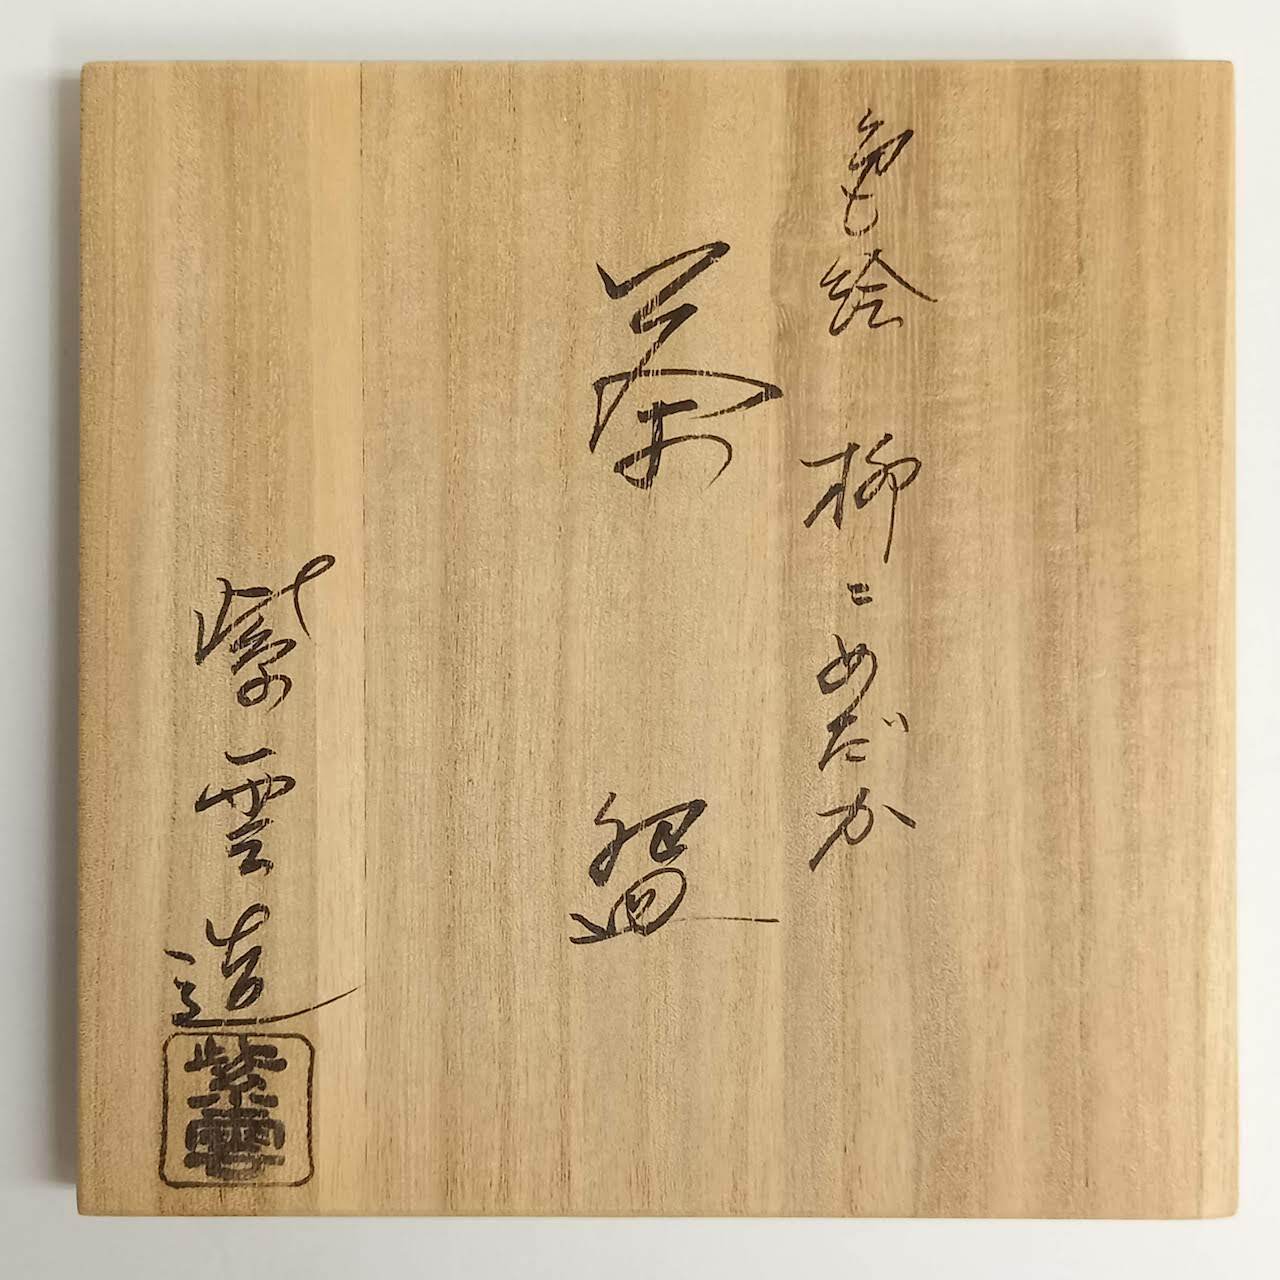 色絵 柳ニめだか
茶盌
紫雲造
紫雲